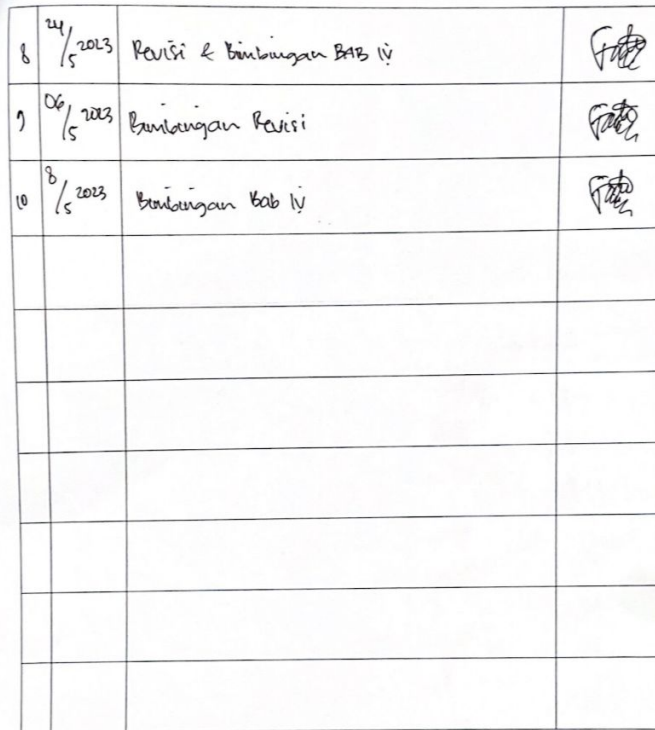 8 24/5 2023 Revisi & Bimbingan BAB IV
9 06/5 2023 Bimbingan Revisi
10 8/5 2023 Bimbingan Bab IV